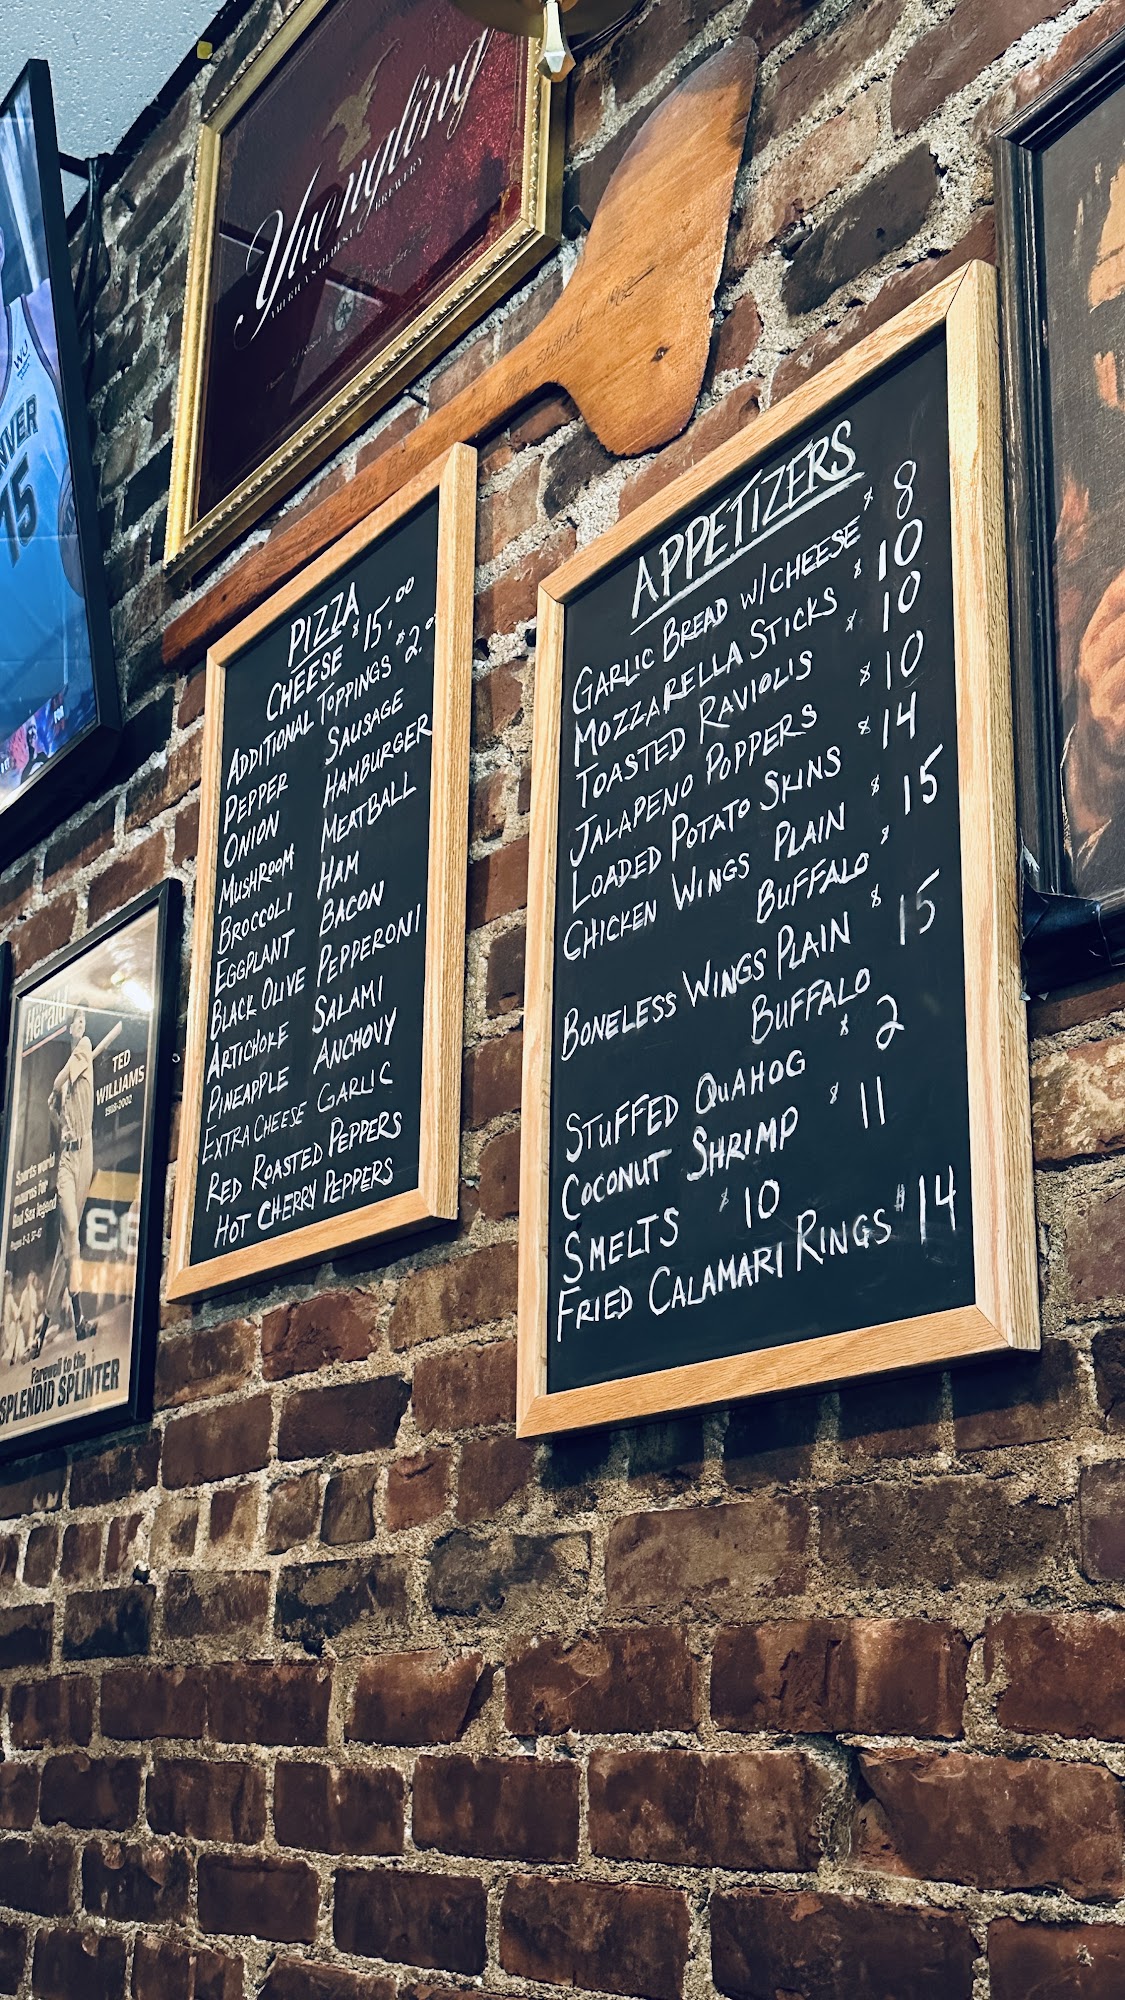 Yuengling
AMERICA'S OLDEST BREWERY
PIZZA
CHEESE $15.00
ADDITIONAL TOPPINGS $2.0
PEPPER SAUSAGE
ONION HAMBURGER
MUSHROOM MEATBALL
BROCCOLI HAM
EGGPLANT BACON
BLACK OLIVE PEPPERONI
ARTICHOKE SALAMI
PINEAPPLE ANCHOVY
EXTRA CHEESE GARLIC
RED ROASTED PEPPERS
HOT CHERRY PEPPERS
APPETIZERS
GARLIC BREAD W/CHEESE $8
MOZZARELLA STICKS $10
TOASTED RAVIOLIS $10
JALAPENO POPPERS $10
LOADED POTATO SKINS $14
CHICKEN WINGS PLAIN $15
BUFFALO $
BONELESS WINGS PLAIN $15
BUFFALO
STUFFED QUAHOG $2
COCONUT SHRIMP $11
SMELTS $10
FRIED CALAMARI RINGS $14
WU
NVER
15
Herald
TED
WILLIAMS
1918-2002
Sports world
mourns for
Red Sox legend
Farewell to the
SPLENDID SPLINTER